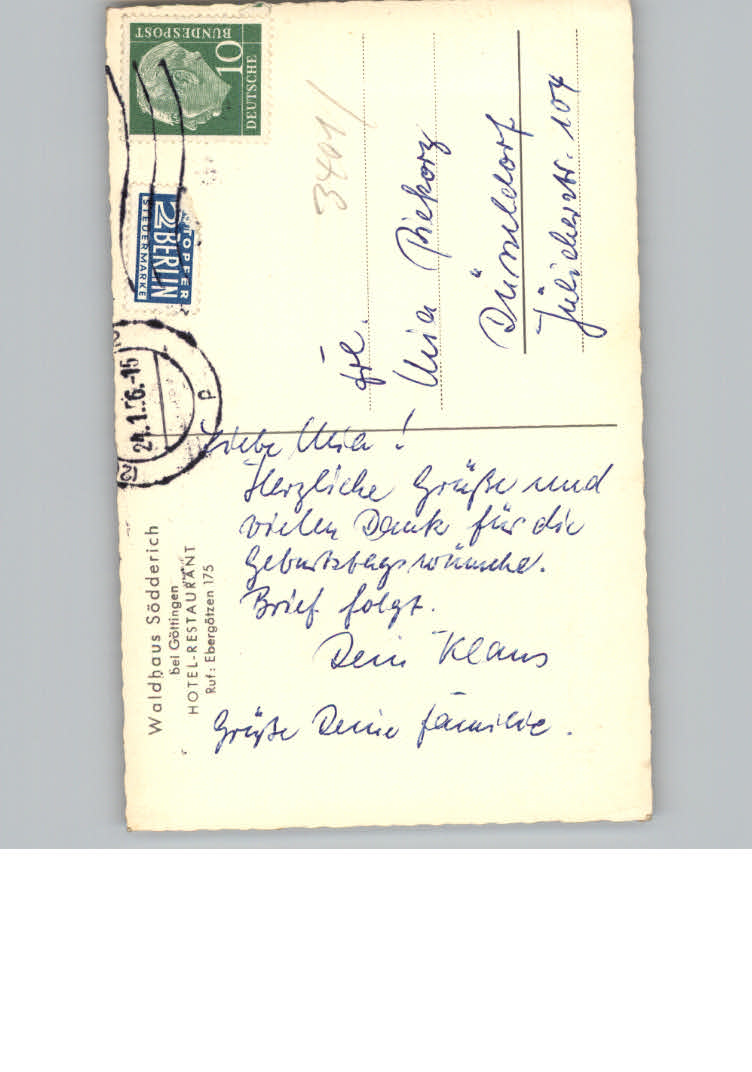 Liebe Mia!
Herzliche Grüße und
vielen Dank für die
Geburtstagswünsche.
Brief folgt.
Dein Klaus
Grüße Deine Familie.
Waldhaus Södderich
bei Göttingen
HOTEL-RESTAURANT
Ruf: Ebergötzen 175
Frl.
Mia Piekorz
Düsseldorf
Jülicherstr. 104
3401/
DEUTSCHE
BUNDESPOST
10
NOTOPFER
2 BERLIN
STEUERMARKE
24.1.56.-15